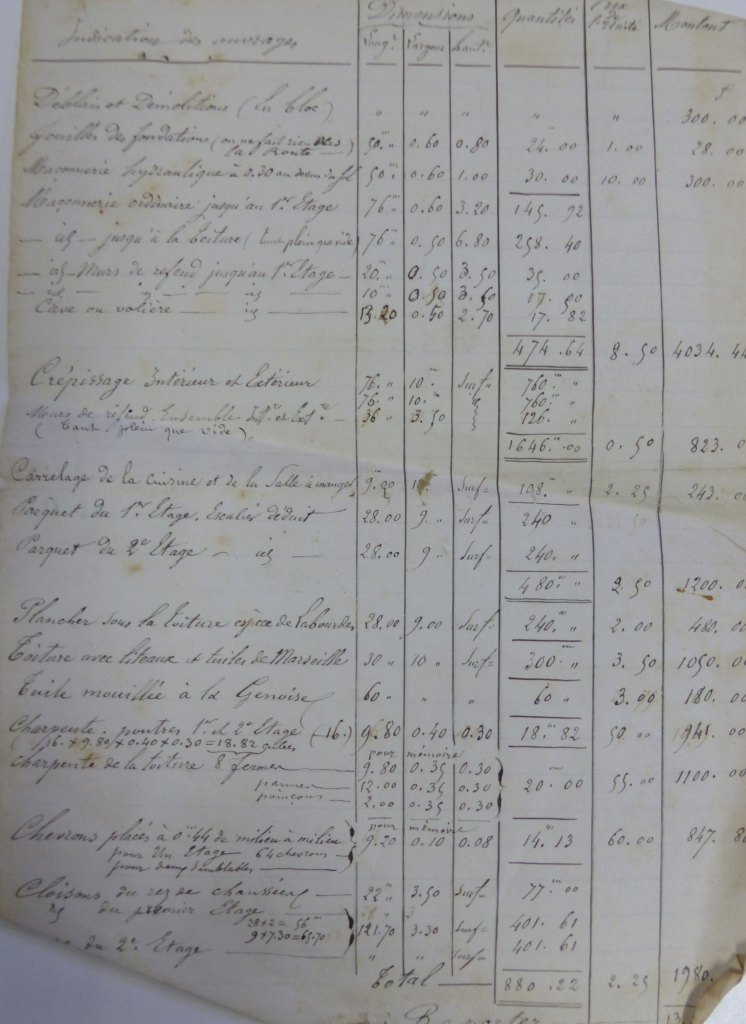 Indication des ouvrages Dimensions Quantités Prix de l'unité Montant
Longr. Largeur hautr.
f
Déblais et Démolitions (En bloc) " " " " " 300.00
fouilles des fondations (on ne fait rien vers la Route) 50.m" 0.60 0.80 24.m00 1.00 28.00
Maçonnerie hydraulique à 0.30 au dessus du sol 50m" 0.60 1.00 30.00 10.00 300.00
Maçonnerie ordinaire jusqu'au 1er Etage 76m" 0.60 3.20 145.92
— id — jusqu'à la toiture (tant plein que vide) 76m" 0.50 6.80 258.40
— id — Murs de refend jusqu'au 1er Etage — 20m" 0.50 3.50 35.00
— id — id — id — 10m" 0.50 3.50 17.50
Cave ou volière — id — 13.20 0.50 2.70 17.82
474.64 8.50 4034.44
Crépissage Intérieur et Extérieur 76." 10.m Surf= 760.m"
76." 10." 760.m"
Murs de refend Ensemble Intre et Extre 36" 3.50 126."
(tant plein que vide).
1646.m00 0.50 823.0
Carrelage de la cuisine et de la Salle à manger 9.m20 Surf= 108.m" 2.25 243.0
Parquet du 1er Etage, Escalier déduit 28.00 9." Surf= 240"
Parquet du 2e Etage — id — 28.00 9" Surf= 240."
480.m" 2.50 1200.0
Plancher sous la toiture espèce de Labourdes 28.00 9.00 Surf= 240.m" 2.00 480.0
Toiture avec liteaux et tuiles de Marseille 30" 10" Surf= 300.m" 3.50 1050.0
Tuile mouillée à la Génoise 60" " " 60" 3.00 180.00
Charpente. poutres 1er et 2e Etage (16.) 9.80 0.40 0.30 18.m82 50.00 941.00
(16. × 9.80 × 0.40 × 0.30 = 18.82 cubes
pour mémoire
Charpente de la toiture 8 fermes — 9.80 0.35 0.30
pannes — 12.00 0.35 0.30 20.m00 55.00 1100.00
poinçons — 2.00 0.35 0.30
pour mémoire
Chevrons placés à 0m44 de milieu à milieu 9.20 0.10 0.08 14.m13 60.00 847.8
pour Un Etage 64 chevrons —
pour deux semblables —
Cloisons du rez de chaussée — 22m" 3.50 Surf= 77.m00
id du premier Etage
28×2 = 56m
9×7.30 = 65.70 121.70 3.30 Surf= 401.61
du 2e Etage " " Surf= 401.61
Total — 880.22 2.25 1980.
à Reporter